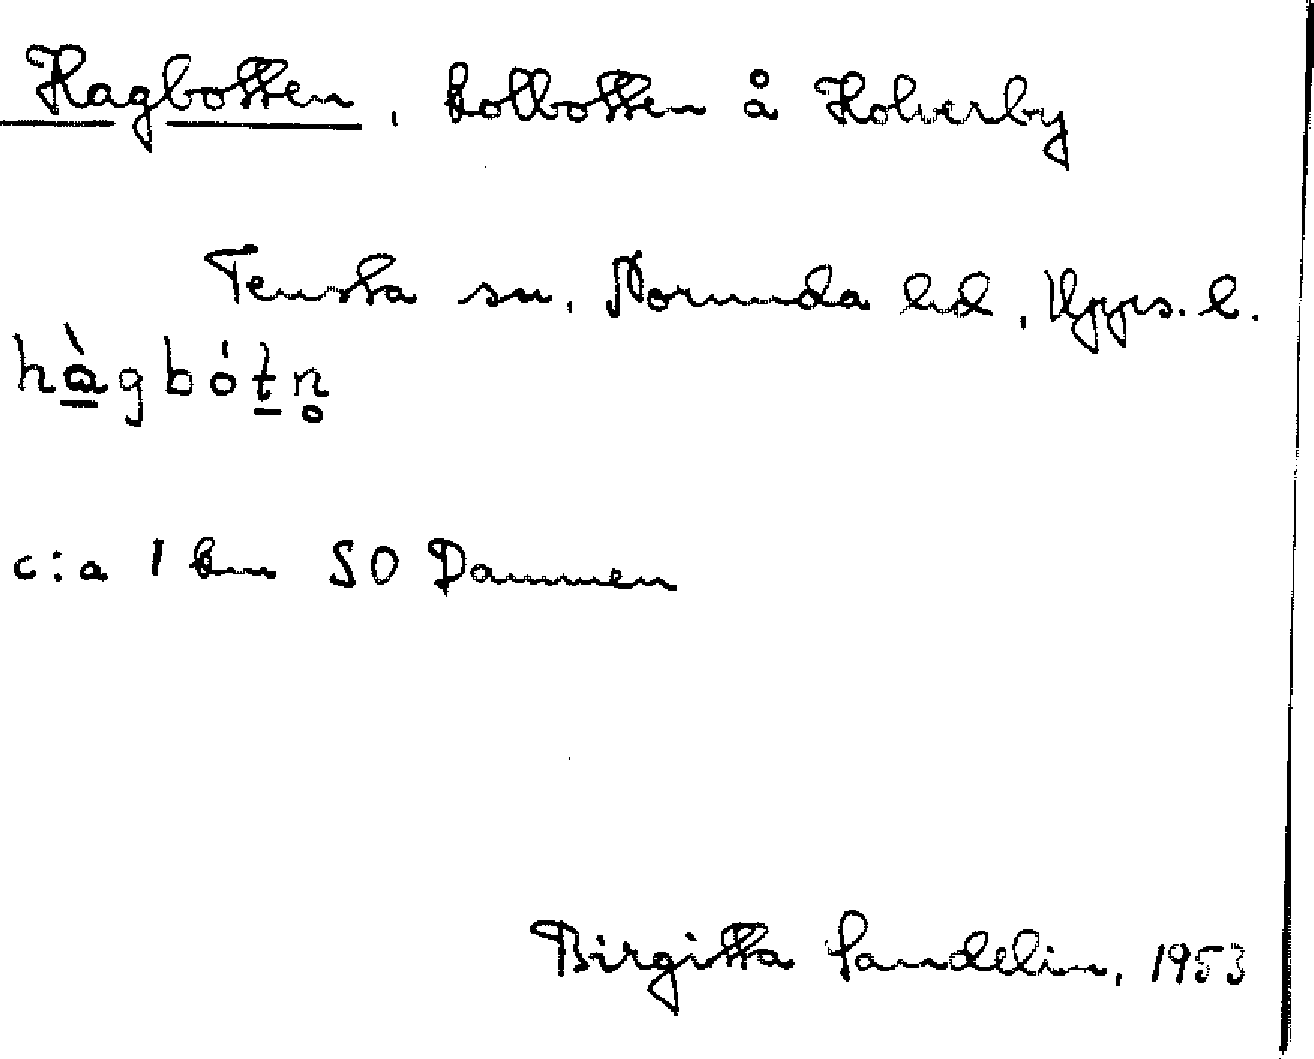 Hagbotten, kolbotten å Holverby
Tensta sn, Norunda hd, Upps. l.
hàgbótn̥
c:a 1 km SO Dammen
Birgitta Sandelin, 1953